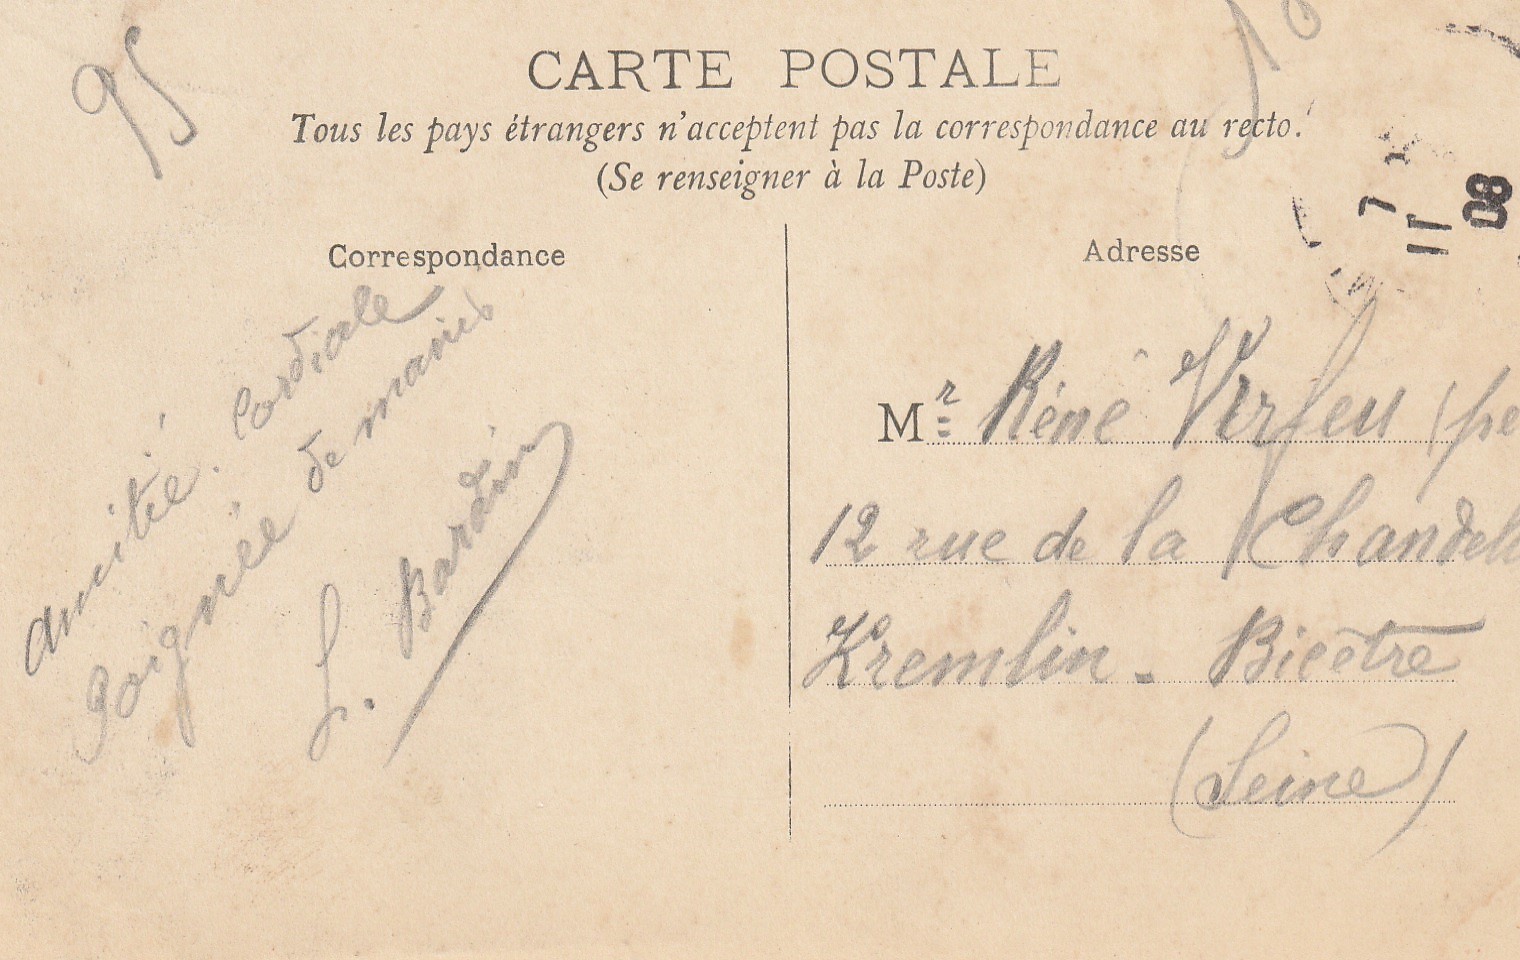 95
10
CARTE POSTALE
Tous les pays étrangers n'acceptent pas la correspondance au recto.
(Se renseigner à la Poste)
7
11
08
Correspondance
Amitié. Cordiale
Poignée de mains
L. Bardin
Adresse
Mr René
12 rue de la
Kremlin - Bicêtre
(Seine)